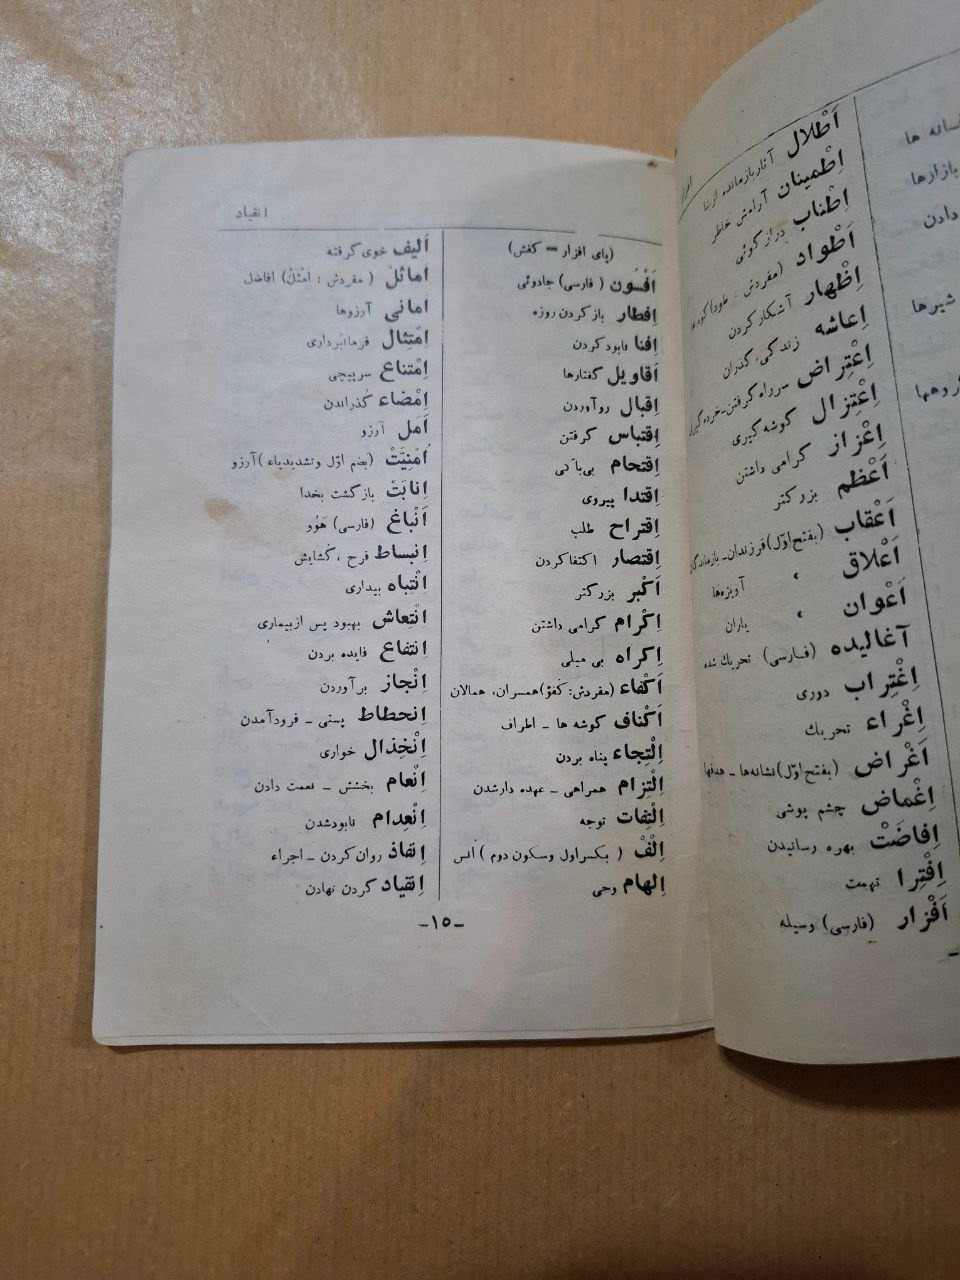 اَطْلال آثار بازمانده از بنا
اِطْمینان آرامش خاطر
اِطْناب دراز گوئی
اَطْواد (مفردش : طود) کوه ها
اِظْهار آشکار کردن
اِعاشه زندگی، گذران
اِعْتِراض سر راه گرفتن-خرده گیری
اِعْتِزال گوشه گیری
اِعْزاز گرامی داشتن
اَعْظم بزرگتر
اَعْقاب (بفتح اوّل) فرزندان_ بازماندگان
اَعْلاق ، آویزه‌ها
اَعْوان ، یاران
آغالیده (فارسی) تحریك شده
اِغْتِراب دوری
اِغْراء تحریك
اَغْراض (بفتح اوّل) نشانه‌ها _ هدفها
اِغْماض چشم پوشی
اِفاضَتْ بهره رسانیدن
اِفْتِرا تهمت
اَفْزار (فارسی) وسیله
سانه ها
بازارها
دادن
شیرها
گروهها
انقیاد
(پای افزار = کفش)
اَفْسُون (فارسی) جادوئی
اِفطار باز کردن روزه
اِفنا نابود کردن
اَقاویل گفتارها
اِقبال رو آوردن
اِقتباس گرفتن
اِقتحام بی‌باکی
اِقتدا پیروی
اِقتراح طلب
اِقتصار اکتفا کردن
اَکْبر بزرگتر
اِکْرام گرامی داشتن
اِکراه بی میلی
اَکْفاء (مفردش: کفؤ) همسران، همالان
اَکْناف گوشه ها _ اطراف
اِلْتِجاء پناه بردن
اِلْتِزام همراهی _ عهده دارشدن
اِلْتِفات توجه
اِلْفْ ( بکسر اول وسکون دوم ) انس
اِلهام وحی
اَلیف خوی گرفته
اَماثِلْ ( مفردش : اَمْثَلْ) افاضل
امانی آرزوها
اِمْتِثال فرمانبرداری
اِمْتناع سرپیچی
اِمْضاء گذراندن
اَمَل آرزو
اُمْنِیَّتْ (بضم اوّل وتشدید یاء) آرزو
اِنابَتْ بازگشت بخدا
اَنْباغ (فارسی) هَوُو
اِنبساط فرح ، گشایش
اِنْتباه بیداری
اِنْتِعاش بهبود پس از بیماری
اِنتفاع فایده بردن
اِنْجاز بر آوردن
اِنحطاط پستی _ فرود آمدن
اِنْخِذال خواری
اِنْعام بخشش _ نعمت دادن
اِنْعِدام نابودشدن
اِنفاذ روان کردن _ اجراء
اِنقیاد گردن نهادن
-۱۵-